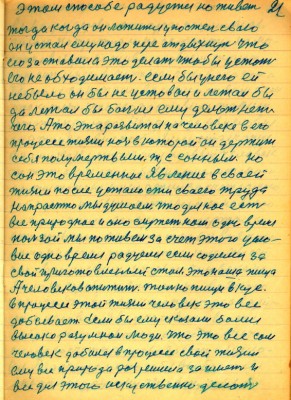 этом способе радуется но живет 21
тогда когда он ложится у постель своею
он устал ему надо пере отдыхнуть что
его заставила это делать чтобы устать
его необходимость. если бы у него ей
небыло он бы не уставал и летал бы
да летал бы
его. А то эта развитая на человека в его
процессе жизни ноч в которой он держит
себя полумертвым. т, е сонным. но
сон это временное явление в своей
жизни после усталости своего труда
Напрасно мы думаем, что для нас есть
все природное и оно служит нам одно время
пользой мы поживем за счет этого
одно время радуемся если садимся за
свой приготовленный стол это наша пища
А человек только пищи вкус.
в процессе этой жизни человек это все
добывает. Если бы ему сказали более
высоко разумные люди. что это все сам
человек добился в процессе своей жизни
ему все природа разрешила за имет и
все для этого искуственно делат